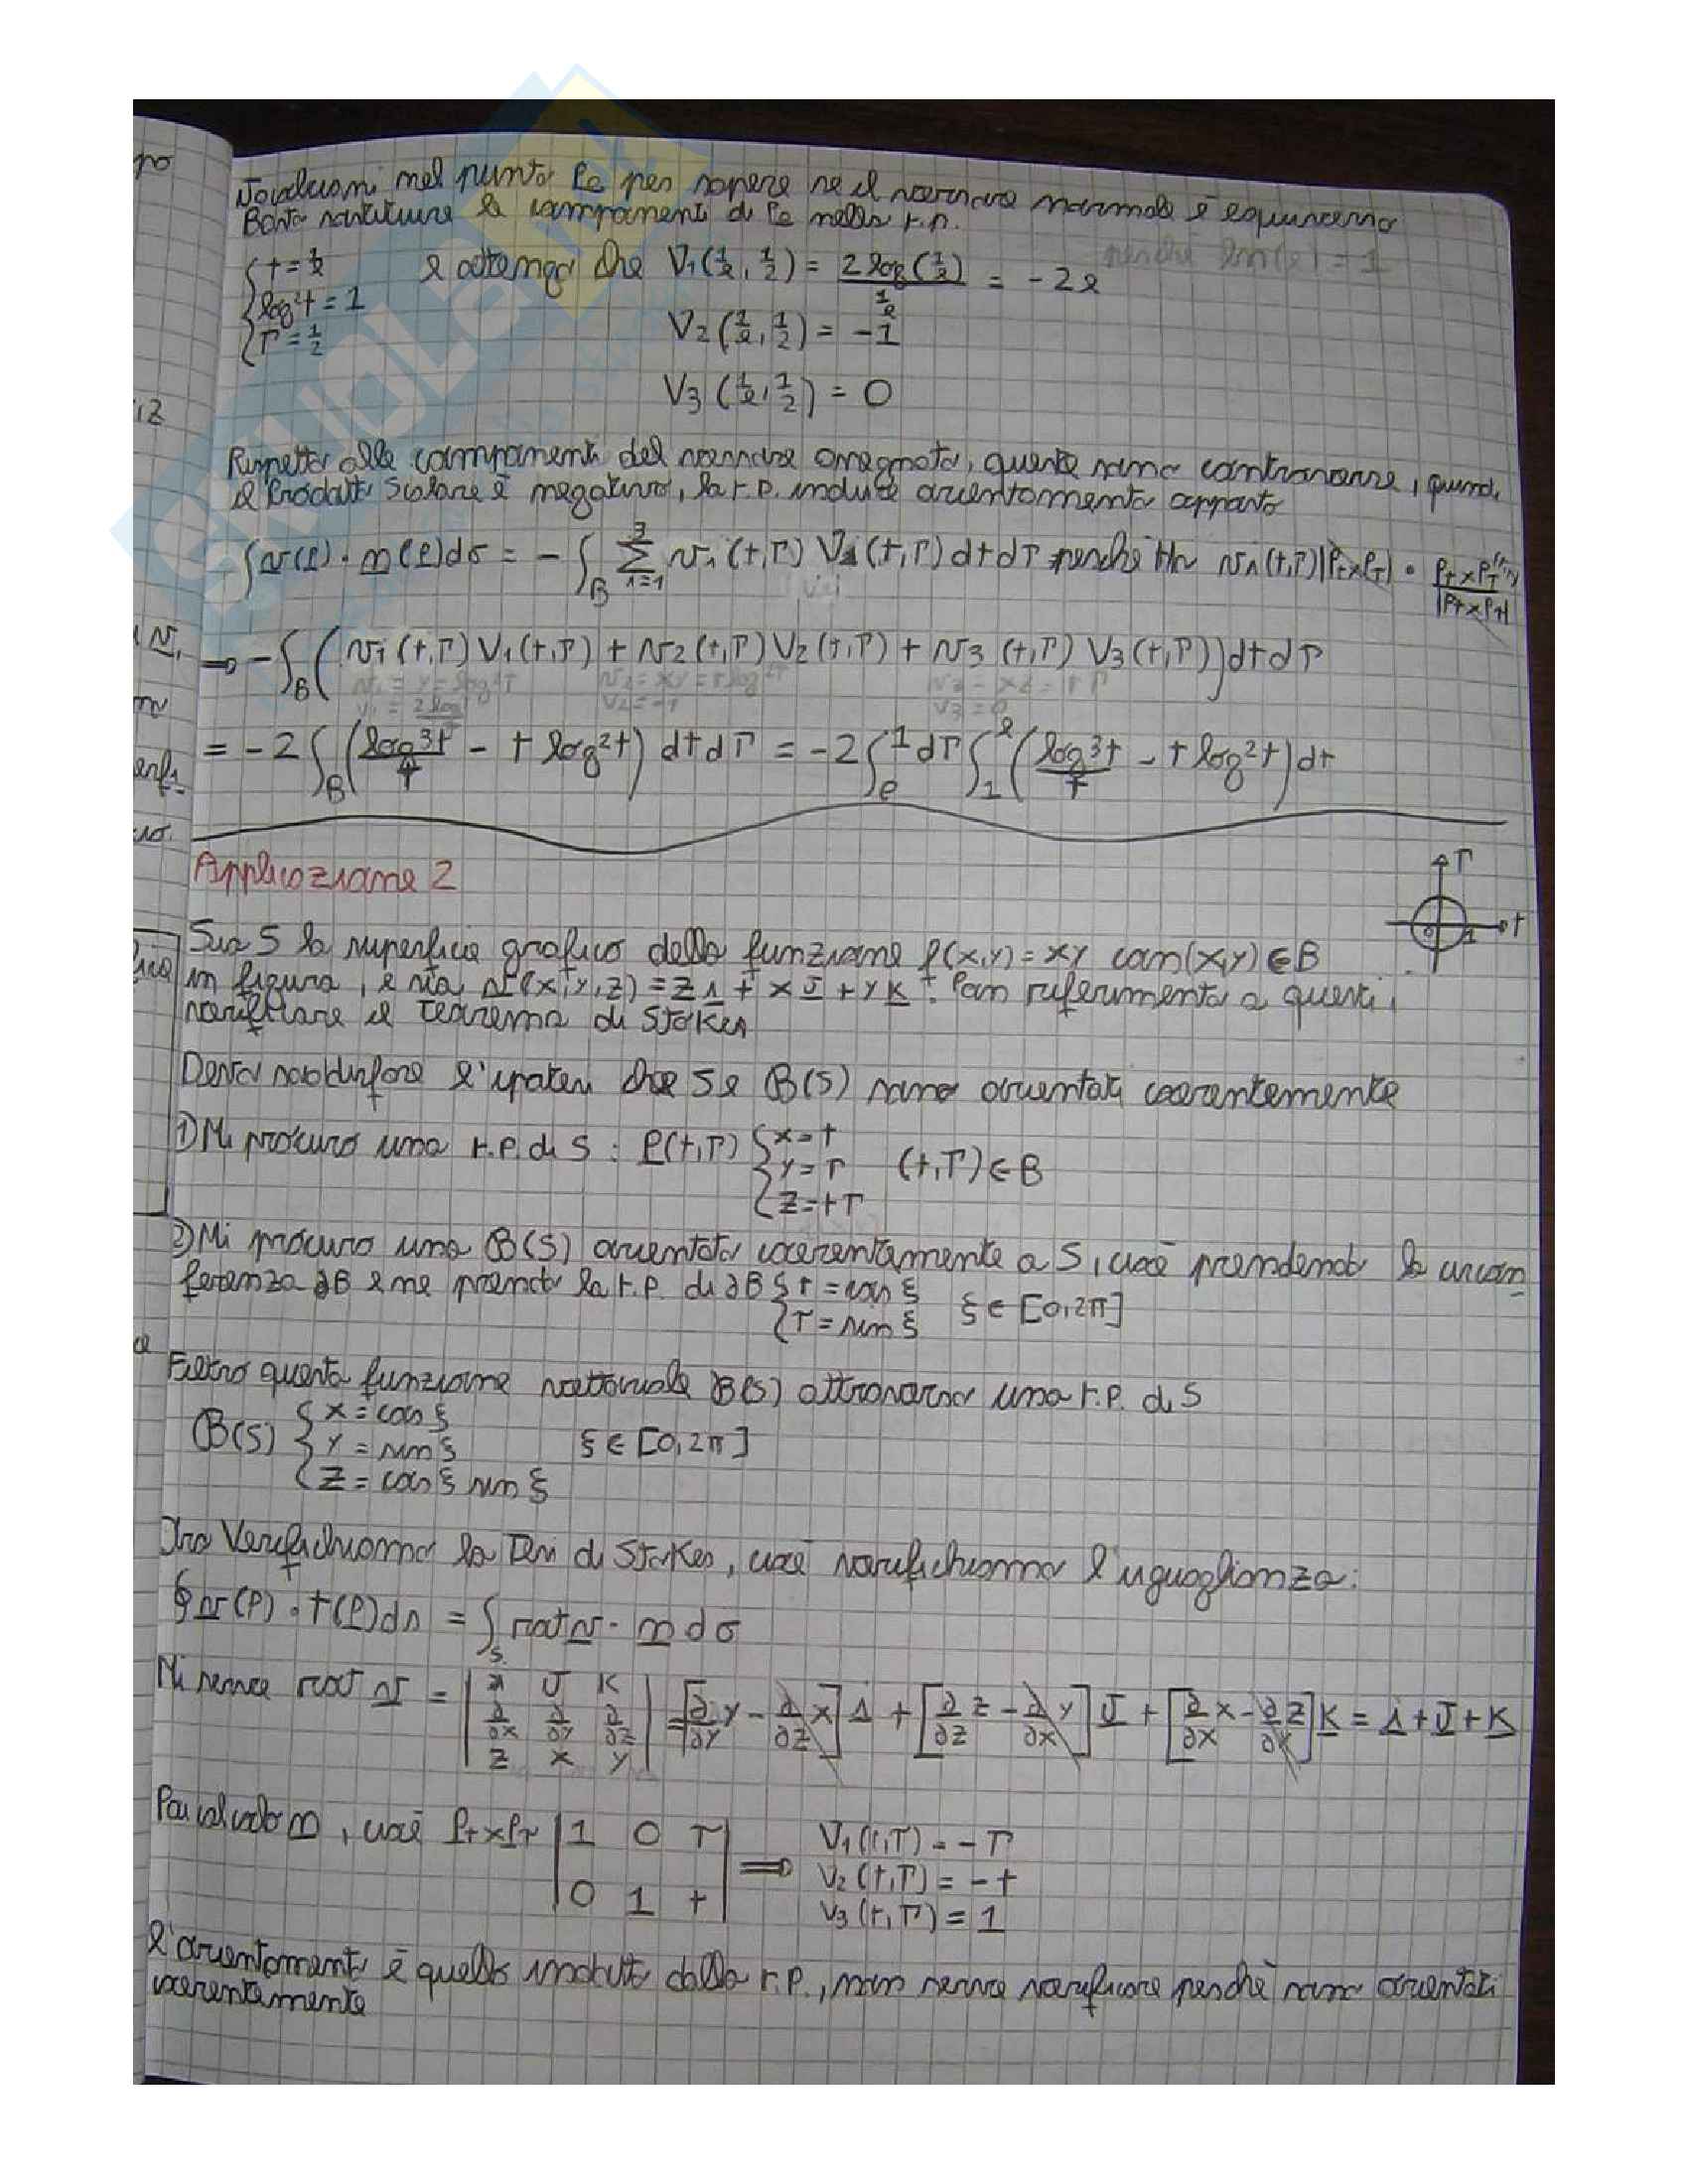 po
nel punto P0 per sapere se il versore normale è equiverso
Basta sostituire le componenti di P0 nella r.p.
{ t = 1/e
log²t = 1
τ = 1/2
e ottengo che V1(1/e, 1/2) = 2log(1/e) / (1/e) = -2e perché ln(e) = 1
V2(1/e, 1/2) = -1
V3(1/e, 1/2) = 0
Rispetto alle componenti del versore assegnato, queste sono controverse, quindi
il Prodotto Scalare è negativo, la r.p. induce orientamento opposto
∫ v(P) · n(P)dσ = - ∫B Σ i=1 3 vi(t,τ) Vi(t,τ) dt dτ perché Ho vi(t,τ)|Pt×Pτ| · Pt×Pτ / |Pt×Pτ|
⇒ - ∫B ( v1(t,τ)V1(t,τ) + v2(t,τ)V2(t,τ) + v3(t,τ)V3(t,τ) ) dt dτ
v1 = y = log²t v2 = xy = t log²t v3 = xz = tτ
V1 = 2log t / t V2 = -1 V3 = 0
= -2 ∫B ( log³t / t - t log²t ) dt dτ = -2 ∫e 1 dτ ∫1 e ( log³t / t - t log²t ) dt
Applicazione 2
τ
0 1 t
Sia S la superficie grafico della funzione f(x,y) = xy con (x,y) ∈ B
in figura, e sia v(x,y,z) = z i + x j + y k. Con riferimento a questi,
verificare il Teorema di Stokes
Devo soddisfare l'ipotesi che S e B(S) sono orientati coerentemente
1) Mi procuro una r.p. di S : P(t,τ) { x = t
y = τ (t,τ) ∈ B
z = tτ
2) Mi procuro una B(S) orientata coerentemente a S, cioè prendendo la circon
ferenza ∂B e me prendo la r.p. di ∂B { t = cos ξ
τ = sin ξ ξ ∈ [0,2π]
Filtro questa funzione vettoriale B(S) attraverso una r.p. di S
B(S) { x = cos ξ
y = sin ξ ξ ∈ [0,2π]
z = cos ξ sin ξ
Ora Verifichiamo la Tesi di Stokes, cioè verifichiamo l'uguaglianza:
∮ v(P) · t(P)ds = ∫S rot v · n dσ
Mi serve rot v = | i j k
∂/∂x ∂/∂y ∂/∂z
z x y | = [∂/∂y y - ∂/∂z x] i + [∂/∂z z - ∂/∂x y] j + [∂/∂x x - ∂/∂y z] k = i + j + k
Poi calcolo n, cioè Pt×Pτ | 1 0 τ
0 1 t | ⇒ V1(t,τ) = -τ
V2(t,τ) = -t
V3(t,τ) = 1
L'orientamento è quello indotto dalla r.p., non serve verificare perché sono orientati
coerentemente